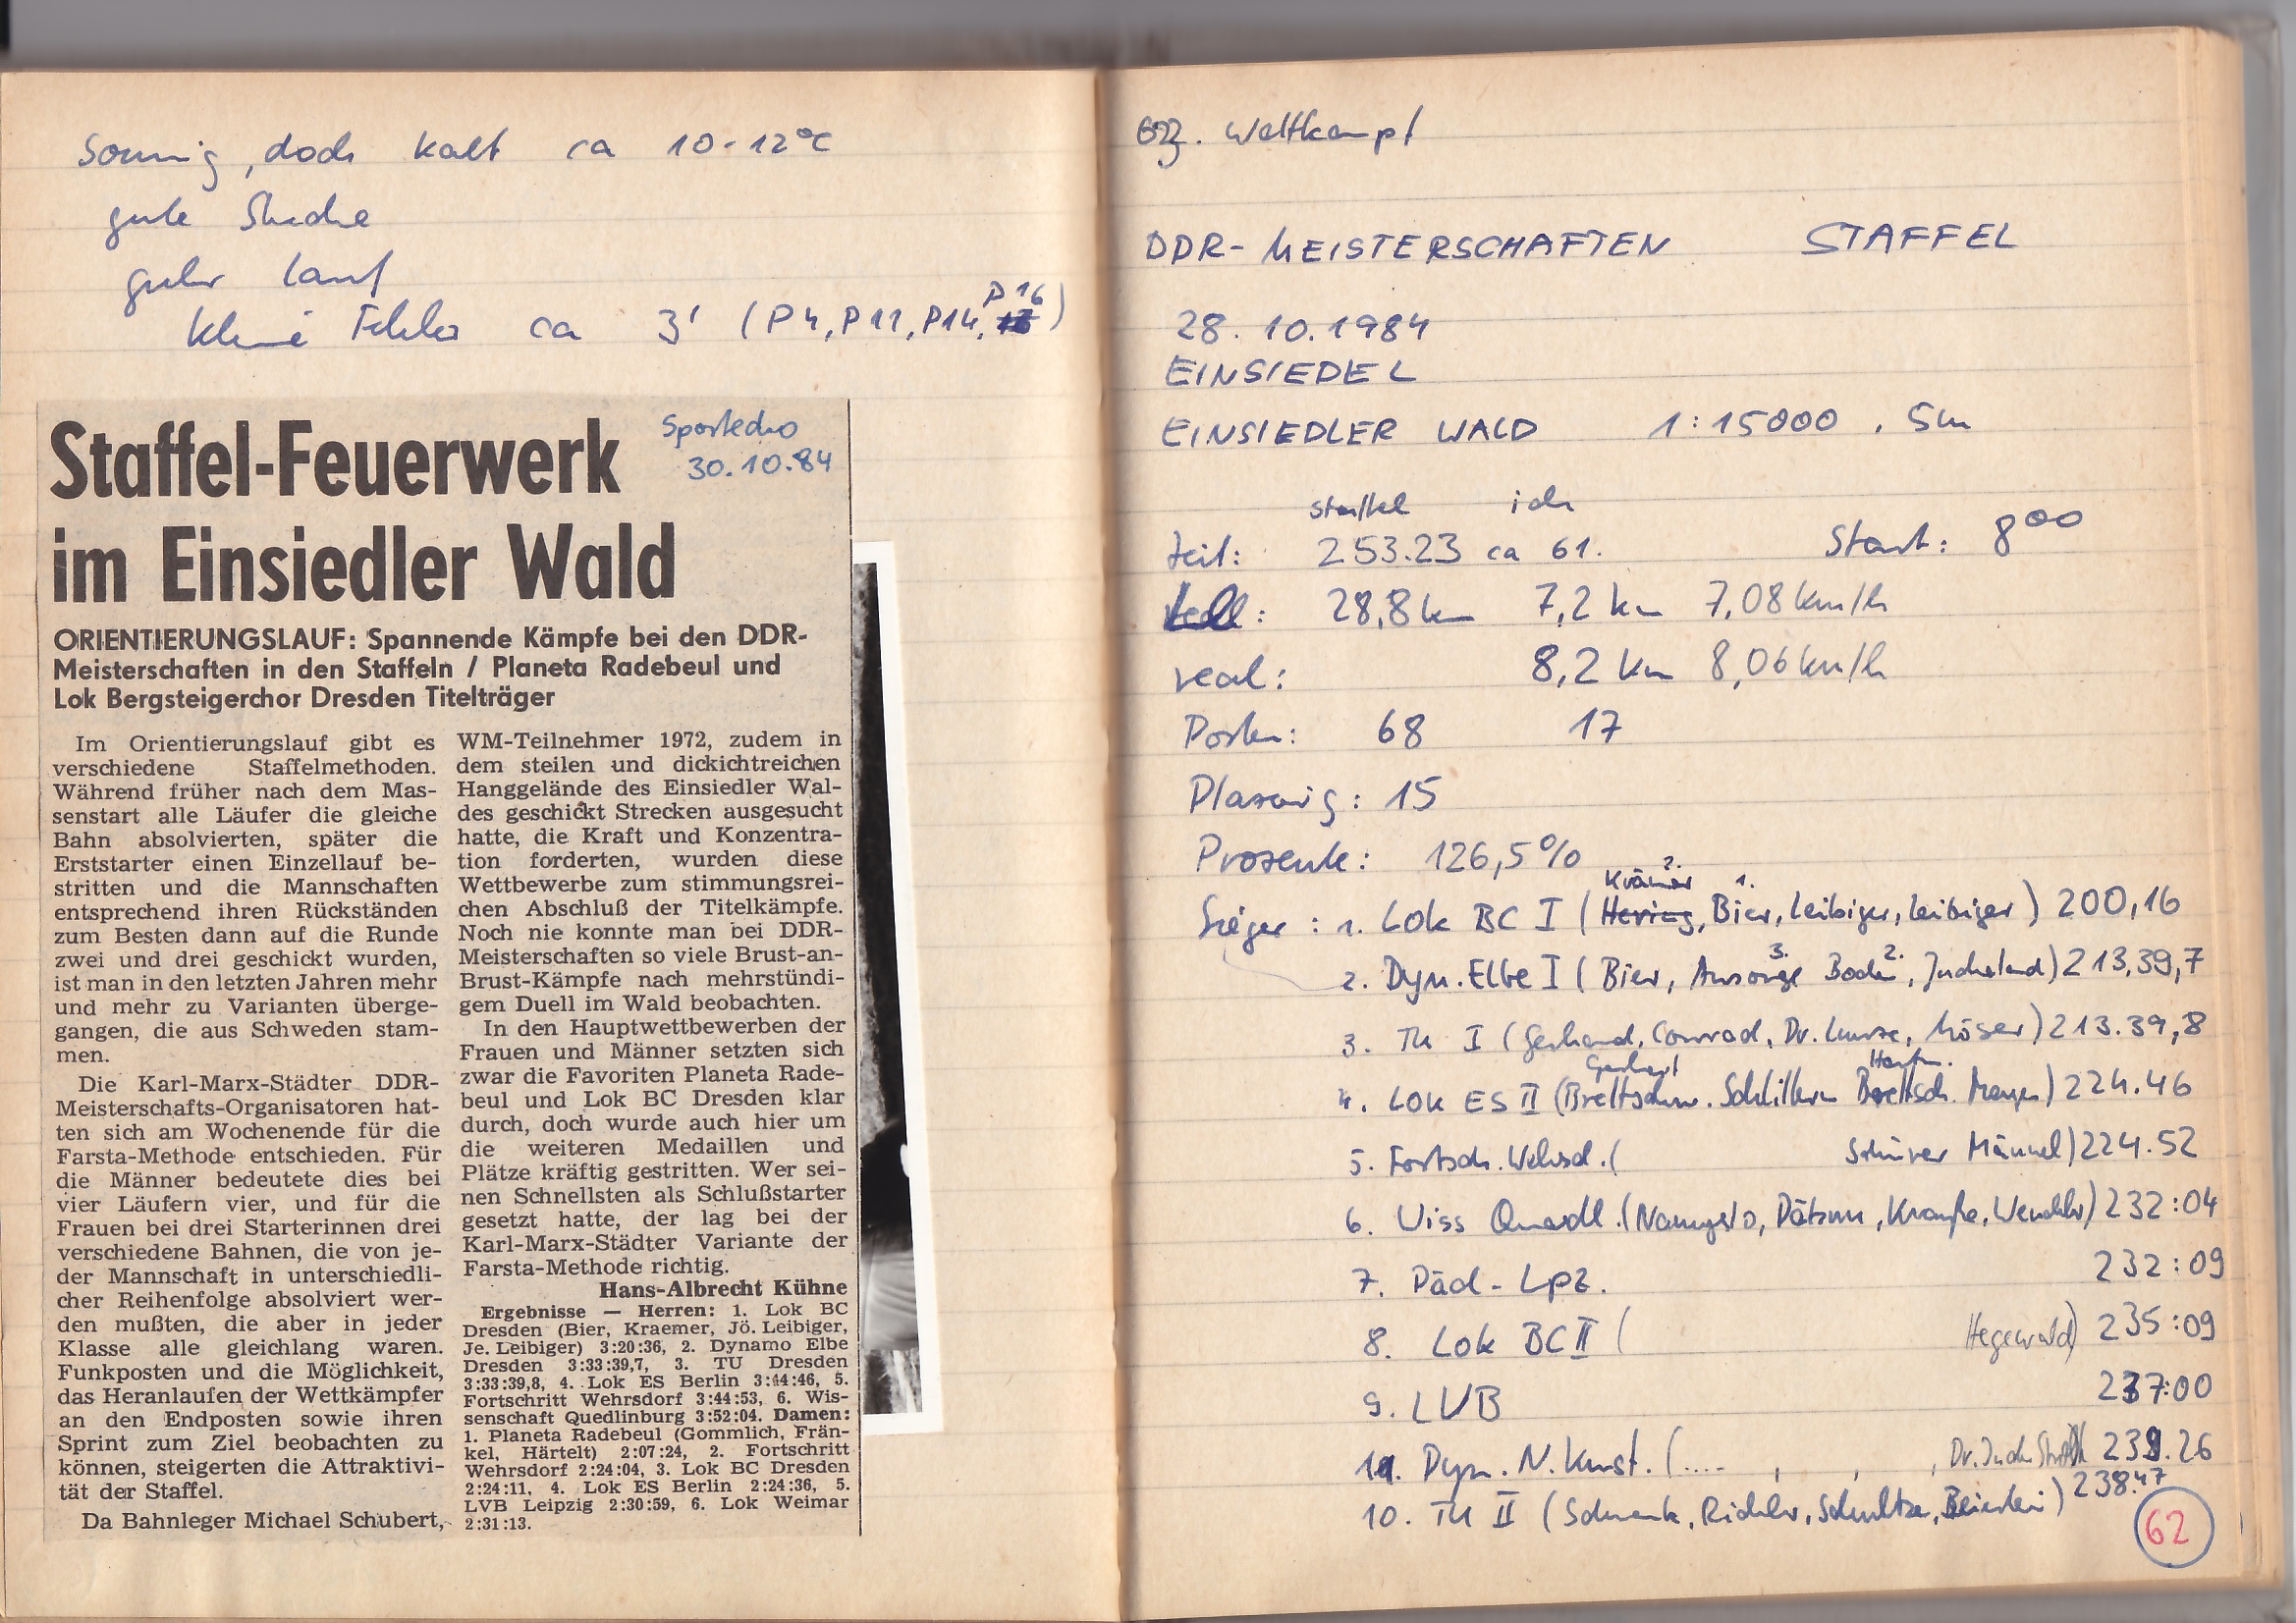 sonnig, doch kalt ca 10-12°C
gute Strecke
guter Lauf
kleine Fehler ca 3' (P4, P11, P14, P16)
Sportecho
30.10.84
Staffel-Feuerwerk
im Einsiedler Wald
ORIENTIERUNGSLAUF: Spannende Kämpfe bei den DDR-
Meisterschaften in den Staffeln / Planeta Radebeul und
Lok Bergsteigerchor Dresden Titelträger
Im Orientierungslauf gibt es
verschiedene Staffelmethoden.
Während früher nach dem Mas-
senstart alle Läufer die gleiche
Bahn absolvierten, später die
Erststarter einen Einzellauf be-
stritten und die Mannschaften
entsprechend ihren Rückständen
zum Besten dann auf die Runde
zwei und drei geschickt wurden,
ist man in den letzten Jahren mehr
und mehr zu Varianten überge-
gangen, die aus Schweden stam-
men.
Die Karl-Marx-Städter DDR-
Meisterschafts-Organisatoren hat-
ten sich am Wochenende für die
Farsta-Methode entschieden. Für
die Männer bedeutete dies bei
vier Läufern vier, und für die
Frauen bei drei Starterinnen drei
verschiedene Bahnen, die von je-
der Mannschaft in unterschiedli-
cher Reihenfolge absolviert wer-
den mußten, die aber in jeder
Klasse alle gleichlang waren.
Funkposten und die Möglichkeit,
das Heranlaufen der Wettkämpfer
an den Endposten sowie ihren
Sprint zum Ziel beobachten zu
können, steigerten die Attraktivi-
tät der Staffel.
Da Bahnleger Michael Schubert,
WM-Teilnehmer 1972, zudem in
dem steilen und dickichtreichen
Hanggelände des Einsiedler Wal-
des geschickt Strecken ausgesucht
hatte, die Kraft und Konzentra-
tion forderten, wurden diese
Wettbewerbe zum stimmungsrei-
chen Abschluß der Titelkämpfe.
Noch nie konnte man bei DDR-
Meisterschaften so viele Brust-an-
Brust-Kämpfe nach mehrstündi-
gem Duell im Wald beobachten.
In den Hauptwettbewerben der
Frauen und Männer setzten sich
zwar die Favoriten Planeta Rade-
beul und Lok BC Dresden klar
durch, doch wurde auch hier um
die weiteren Medaillen und
Plätze kräftig gestritten. Wer sei-
nen Schnellsten als Schlußstarter
gesetzt hatte, der lag bei der
Karl-Marx-Städter Variante der
Farsta-Methode richtig.
Hans-Albrecht Kühne
Ergebnisse — Herren: 1. Lok BC
Dresden (Bier, Kraemer, Jö. Leibiger,
Je. Leibiger) 3:20:36, 2. Dynamo Elbe
Dresden 3:33:39,7, 3. TU Dresden
3:33:39,8, 4. Lok ES Berlin 3:44:46, 5.
Fortschritt Wehrsdorf 3:44:53, 6. Wis-
senschaft Quedlinburg 3:52:04. Damen:
1. Planeta Radebeul (Gommlich, Frän-
kel, Härtelt) 2:07:24, 2. Fortschritt
Wehrsdorf 2:24:04, 3. Lok BC Dresden
2:24:11, 4. Lok ES Berlin 2:24:36, 5.
LVB Leipzig 2:30:59, 6. Lok Weimar
2:31:13.
Wettkampf
DDR-MEISTERSCHAFTEN STAFFEL
28.10.1984
EINSIEDEL
EINSIEDLER WALD 1:15000, 5m
Staffel ich
Zeit: 253.23 ca 61. Start: 8⁰⁰
28,8 km 7,2 km 7,08 km/h
real: 8,2 km 8,06 km/h
Posten: 68 17
Plazierung: 15
Prozente: 126,5%
Krämer 2. 1.
Sieger: 1. Lok BC I (Hering, Bier, Leibiger, Leibiger) 200,16
3. 2.
2. Dyn. Elbe I (Bier, Ansorge, Boden, Jucheland) 213,39,7
3. TU I (Gerhard, Conrad, Dr. Kunze, Möser) 213.39,8
4. Lok ES II (Brettschn. Brettsch. Mayer) 224.46
5. Fortsch. Wehrsd. ( Männel) 224.52
6. Wiss Quedl. ( Krampe, Wendler) 232:04
7. Päd-Lpz. 232:09
8. Lok BC II ( Hegewald) 235:09
9. LVB 237:00
Dyn. N. Kunst. (.... , , , Dr. 26
10. TU II (Schwenk, Richter, Schultze, ) 238.47
62